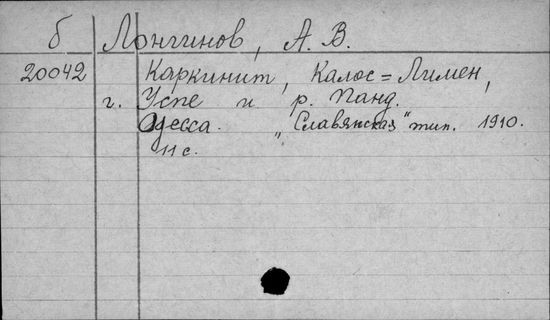 б Лонгинов, А. В.
20042 Каркинит, Калос=Лимен,
г. Успе и р. Панд.
Одесса. „Славянская" тип. 1910.
11 с.